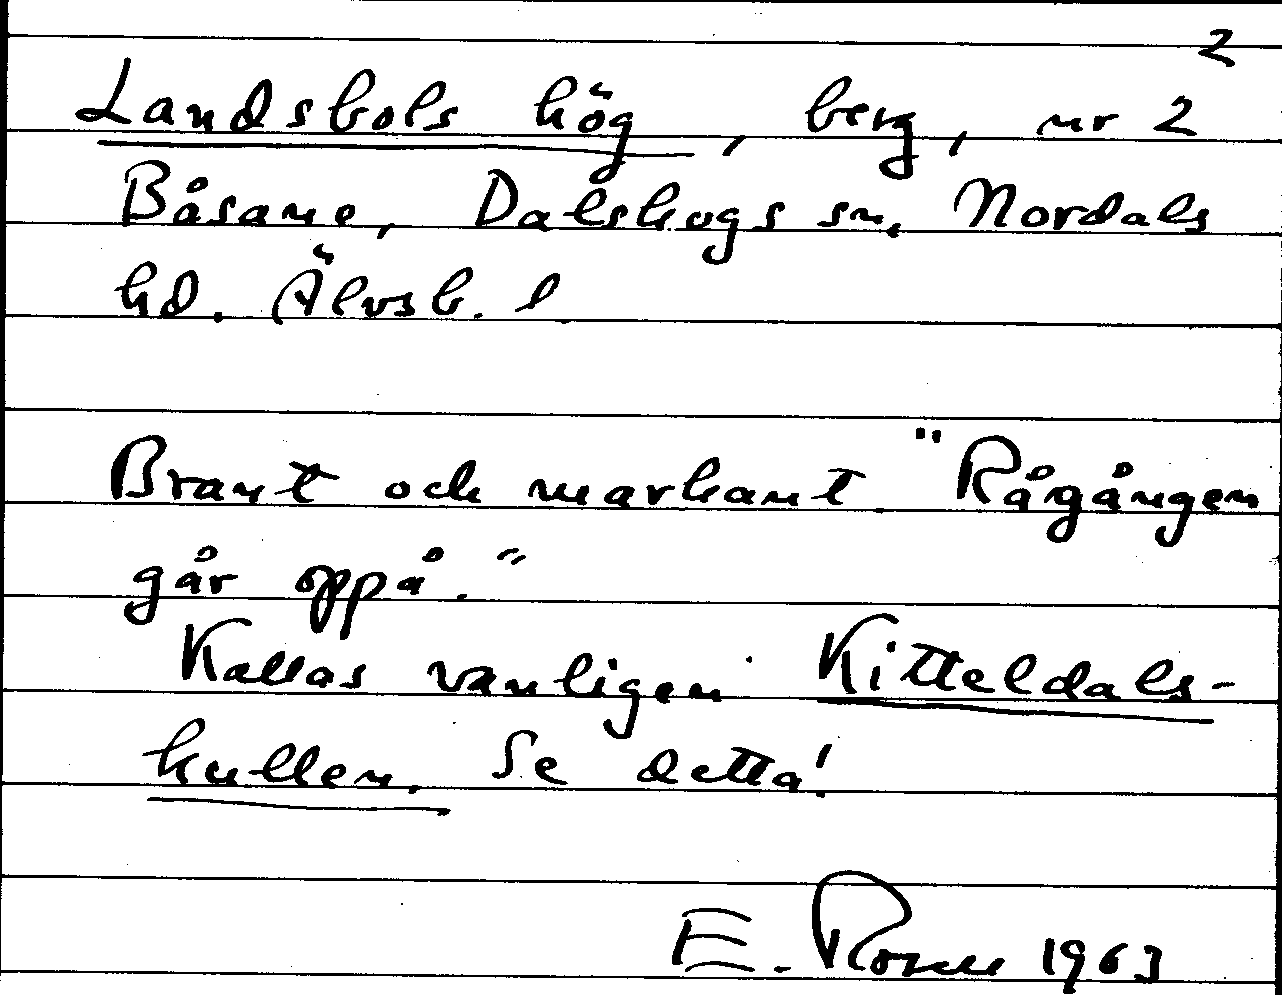 2
Landsbols hög, berg, nr 2
Båsane, Dalskogs sn, Nordals
hd. Älvsb. l
Brant och markant. "Rågången
går oppå."
Kallas vanligen Kitteldals-
kullen. Se detta!
E. Rosell 1963